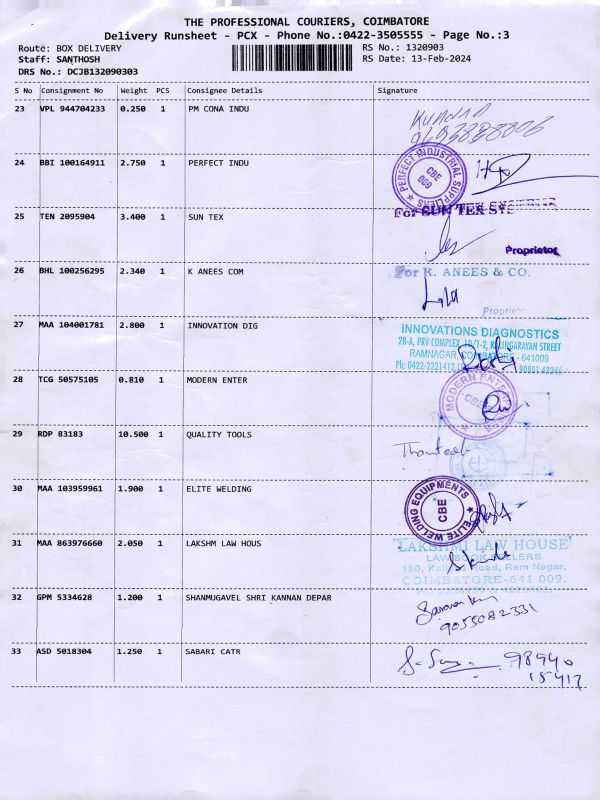 THE PROFESSIONAL COURIERS, COIMBATORE
Delivery Runsheet - PCX - Phone No.:0422-3505555 - Page No.:3
Route: BOX DELIVERY
RS No.: 1320903
Staff: SANTHOSH
RS Date: 13-Feb-2024
DRS No.: DCJB132090303
S No Consignment No Weight PCS Consignee Details Signature
23 VPL 944704233 0.250 1 PM CONA INDU
24 BBI 100164911 2.750 1 PERFECT INDU
PERFECT INDUSTRIAL SUPPLIERS
CBE
009
25 TEN 2095904 3.400 1 SUN TEX
For SUN TEK
Proprietor
26 BHL 100256295 2.340 1 K ANEES COM
For K. ANEES & CO.
Proprietr
27 MAA 104001781 2.800 1 INNOVATION DIG
INNOVATIONS DIAGNOSTICS
28-A, PRV COMPLEX, 10/1-2, KALINGARAYAN STREET
RAMNAGAR, COIMBATORE - 641009
Ph: 0422-2231412
28 TCG 50575105 0.810 1 MODERN ENTER
MODERN ENTER
CBE
29 RDP 83183 10.500 1 QUALITY TOOLS
30 MAA 103959961 1.900 1 ELITE WELDING
ELITE WELDING EQUIPMENTS
CBE
31 MAA 863976660 2.050 1 LAKSHM LAW HOUS
"LAKSHMI LAW HOUSE"
LAW BOOK SELLERS
Road, Ram Nagar,
COIMBATORE-641 009.
32 GPM 5334628 1.200 1 SHANMUGAVEL SHRI KANNAN DEPAR
9055082331
33 ASD 5018304 1.250 1 SABARI CATR
98940
15417